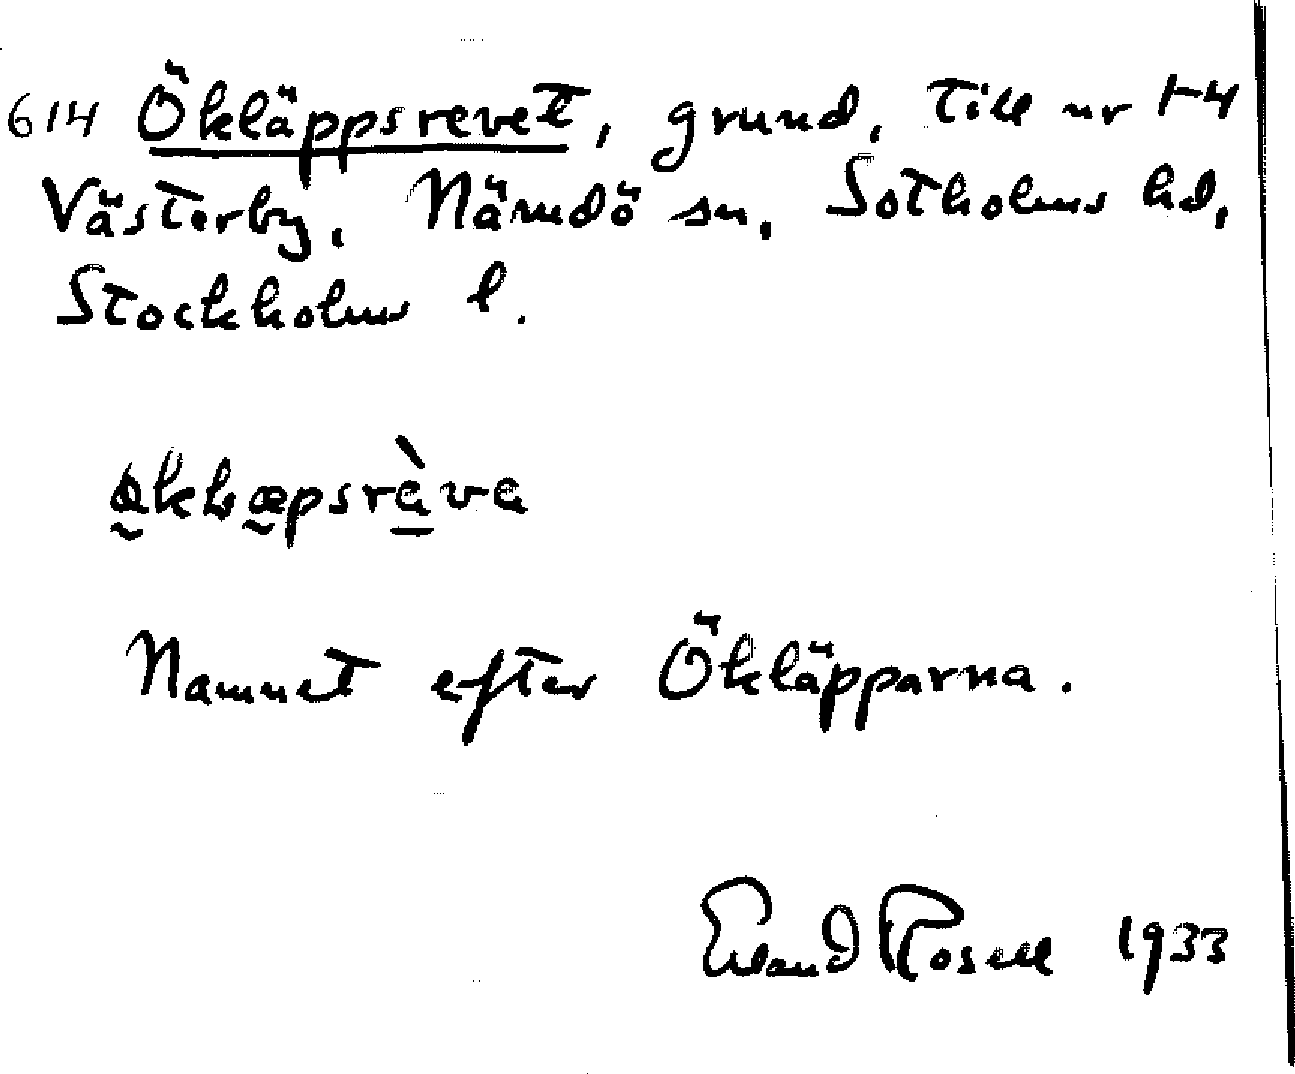 614 Ökläppsrevet, grund, till nr 1-4
Västerby, Nämdö sn, Sotholms hd,
Stockholms l.
Namnet efter Ökläpparna.
Erland Rosell 1933